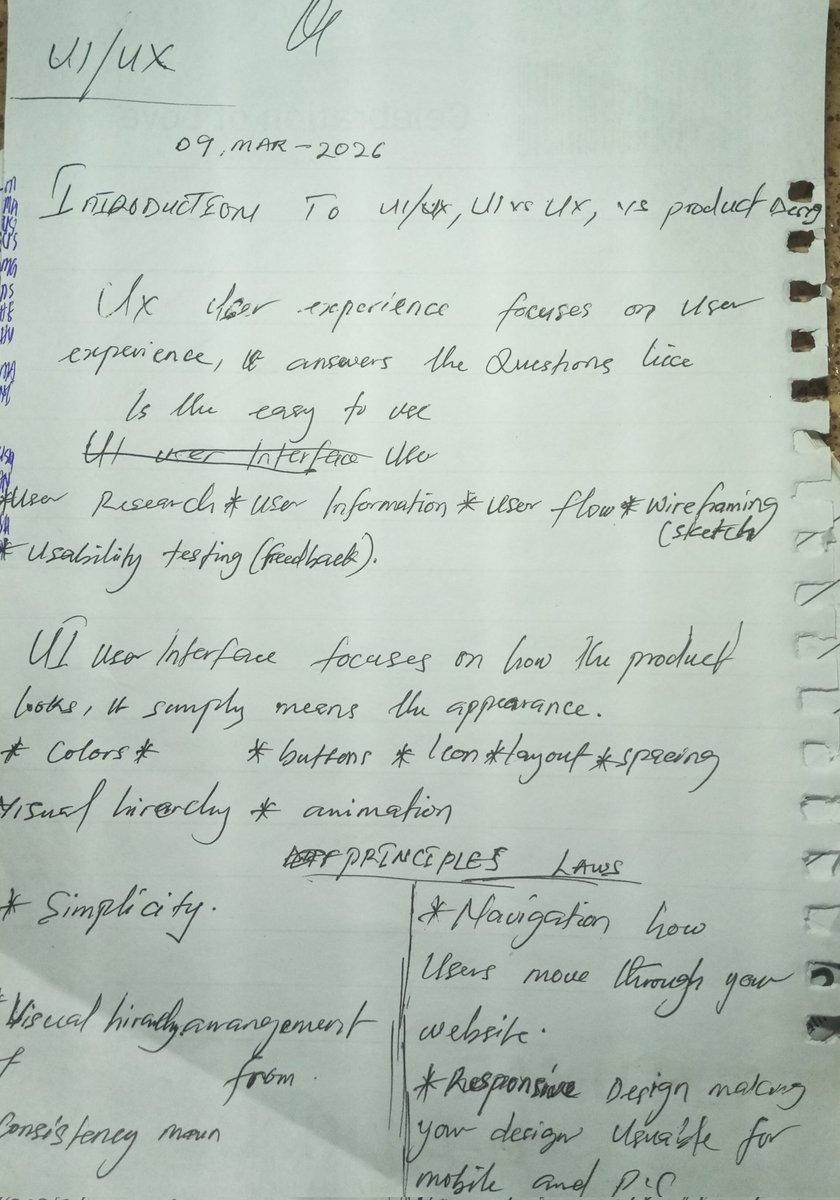 UI/UX
09, MAR-2026
INTRODUCTION To UI/UX, UI vs UX, vs product Desng
Ux User experience focuses on user
experience, it answers the Questions like
Is the easy to use
UI user Interface User
*User Research * user Information * user flow * wireframing
(sketch
* Usability testing (feedback).
UI user Interface focuses on how the product
looks, it simply means the appearance.
* Colors * * buttons * Icon * layout * spacing
Visual hirarchy * animation
PRINCIPLES LAWS
* Simplicity.
*Visual hirachy arrangement
from.
Consistency
*Navigation how
Users move through your
website.
*Responsive Design making
your design usuable for
mobile and P.C